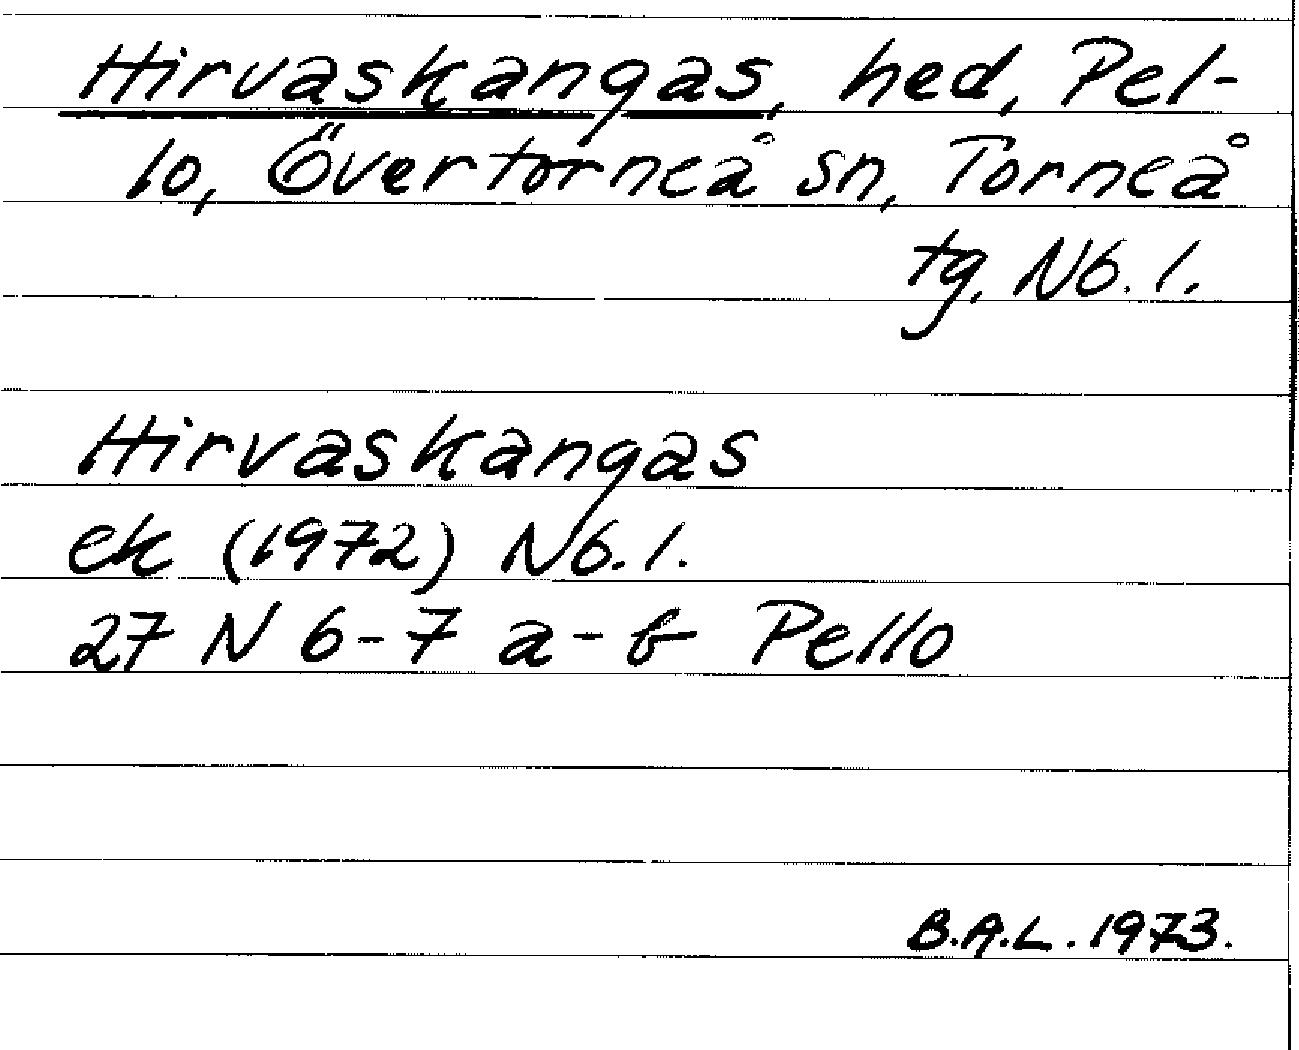 Hirvaskangas, hed, Pel-
lo, Övertorneå sn, Torneå
tg, Nb. l.
Hirvaskangas
ek (1972) Nb. l.
27 N 6-7 a-b Pello
B.A.L. 1973.